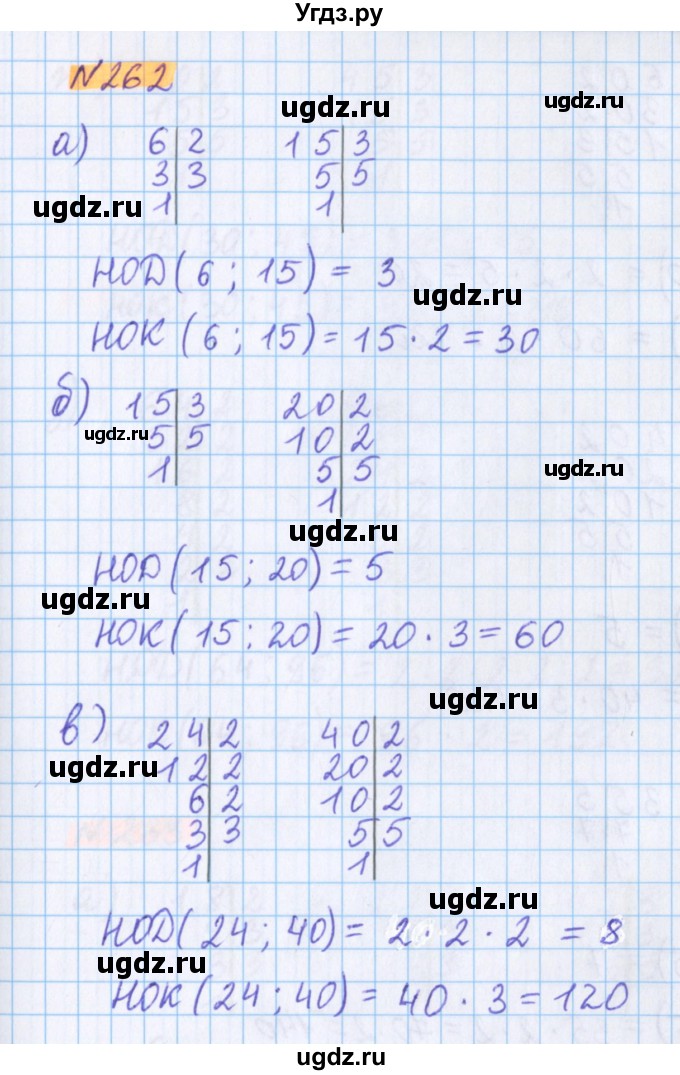 Угдз.ру
№262
ugdz.ru
ugdz.ru
а) 6 | 2   15 | 3
3 | 3   5 | 5
ugdz.ru
1 |   1 |
НОД (6 ; 15) = 3
ugdz.ru
НОК (6 ; 15) = 15 · 2 = 30
б) 15 | 3   20 | 2
ugdz.ru
5 | 5   10 | 2
1 |   5 | 5
ugdz.ru
1 |
ugdz.ru
НОД (15 ; 20) = 5
ugdz.ru
НОК (15 ; 20) = 20 · 3 = 60
ugdz.ru
в) 24 | 2   40 | 2
ugdz.ru
12 | 2   20 | 2
6 | 2   10 | 2
3 | 3   5 | 5
ugdz.ru
1 |   1 |
ugdz.ru
НОД (24 ; 40) = 2 · 2 · 2 = 8
ugdz.ru
НОК (24 ; 40) = 40 · 3 = 120
ugdz.ru